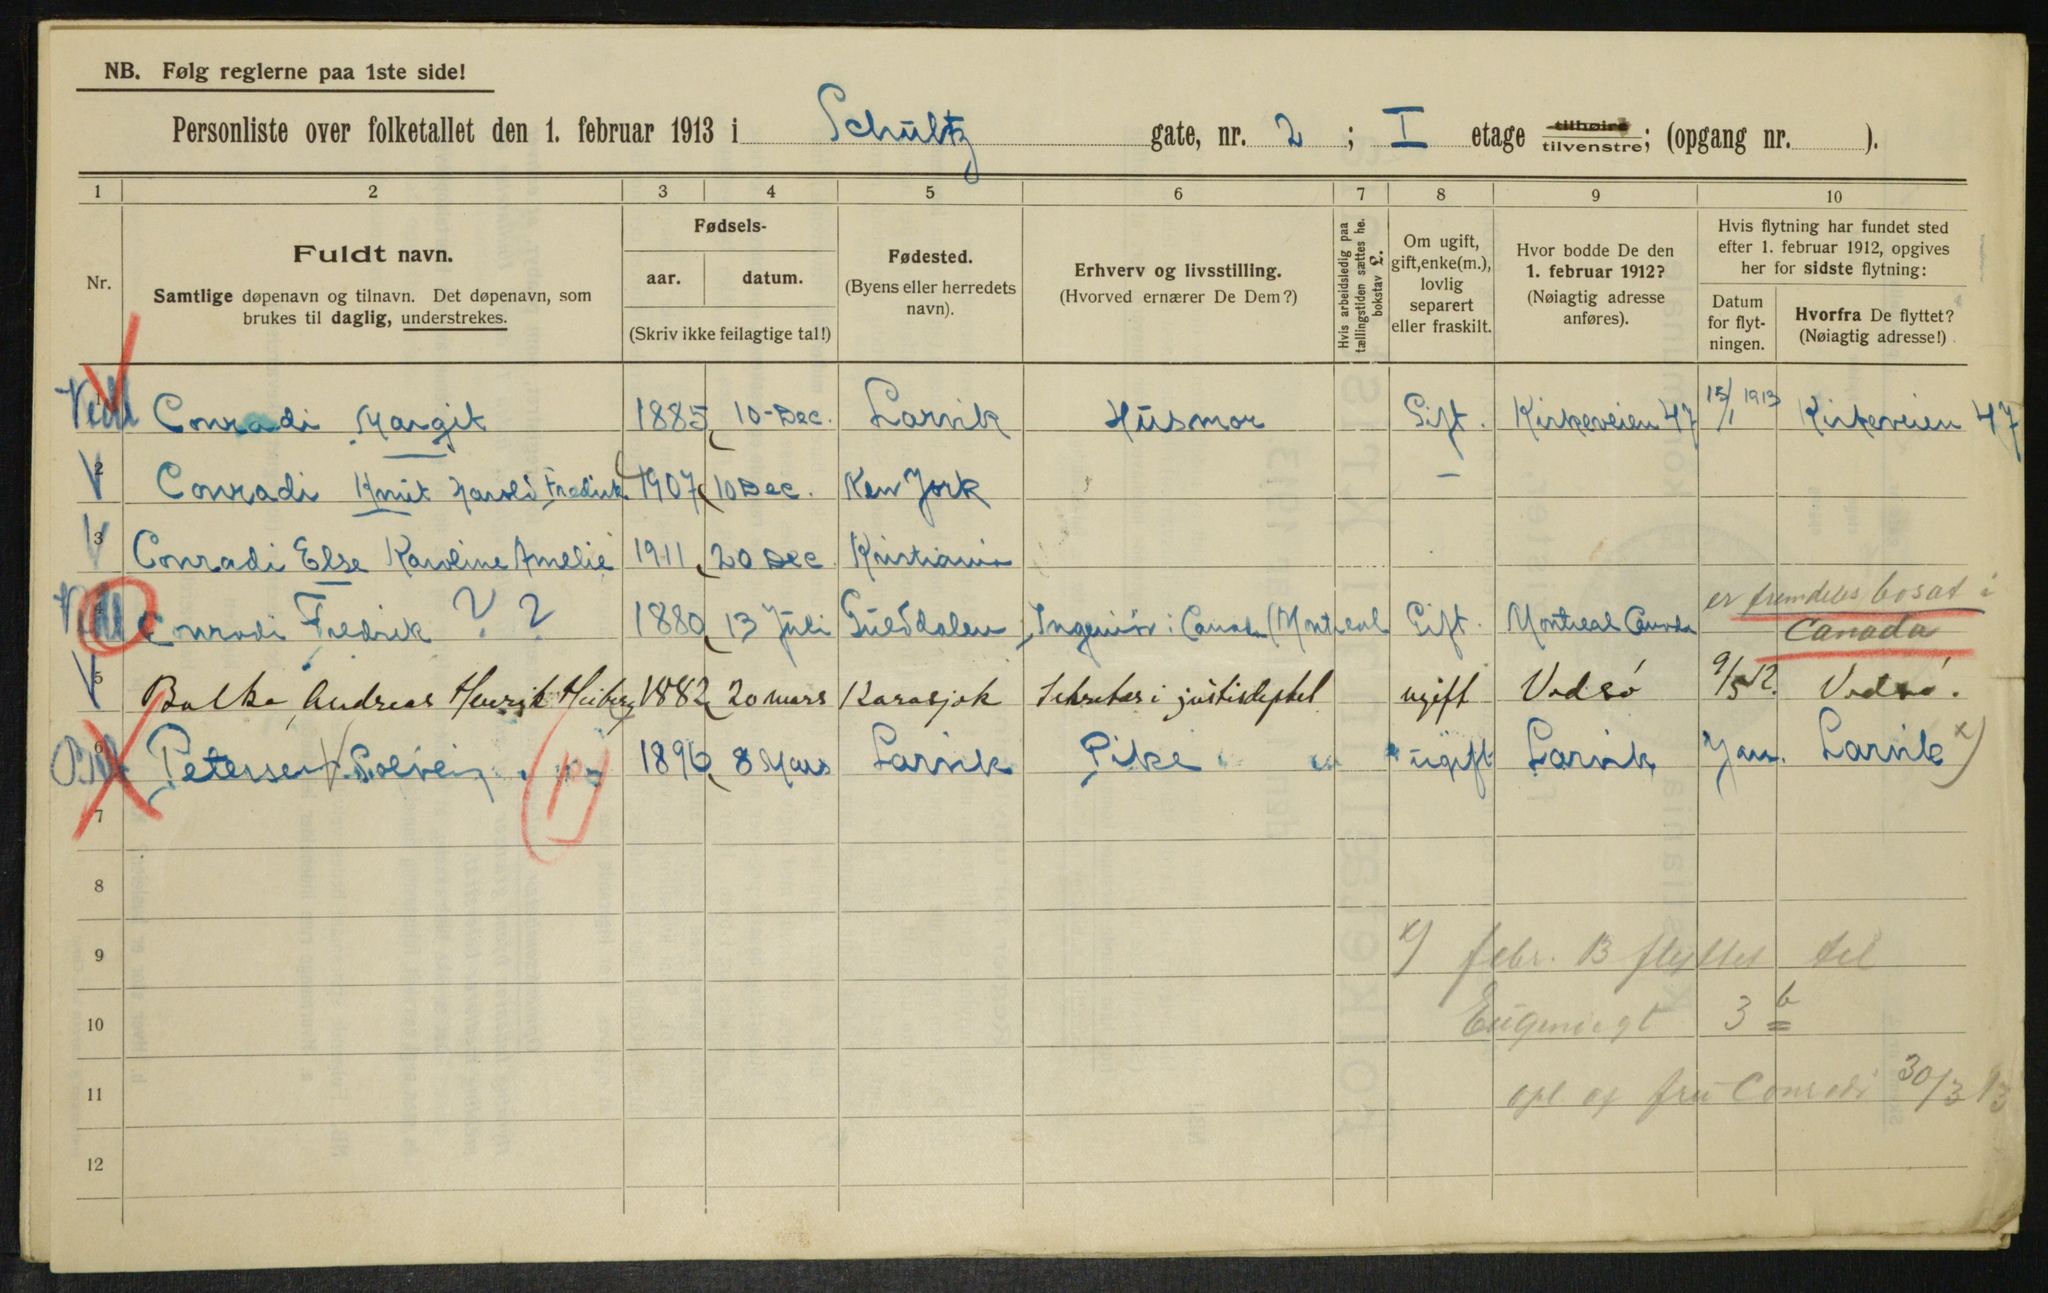 NB. Følg reglerne paa 1ste side!
Personliste over folketallet den 1. februar 1913 i Schultz gate, nr. 2 ; I etage tilhøire tilvenstre; (opgang nr. ).
1 2 3 4 5 6 7 8 9 10
Nr.
Fuldt navn.
Samtlige døpenavn og tilnavn. Det døpenavn, som
brukes til daglig, understrekes.
Fødsels-
aar. datum.
(Skriv ikke feilagtige tal!)
Fødested.
(Byens eller herredets
navn).
Erhverv og livsstilling.
(Hvorved ernærer De Dem?)
Hvis arbeidsledig paa
tællingstiden sættes he.
bokstav L.
Om ugift,
gift, enke(m.),
lovlig
separert
eller fraskilt.
Hvor bodde De den
1. februar 1912?
(Nøiagtig adresse
anføres).
Hvis flytning har fundet sted
efter 1. februar 1912, opgives
her for sidste flytning:
Datum
for flyt-
ningen.
Hvorfra De flyttet?
(Nøiagtig adresse!)
1 Conradi Margit 1885 10-Dec. Larvik Husmor Gift. Kirkeveien 47 15/1 1913 Kirkeveien 47
2 Conradi Knut Harold Fredrik 1907 10 Dec. New York –
3 Conradi Else Karoline Amelie 1911 20 Dec Kristiania
er fremdeles bosat i
4 Conradi Fredrik ? ? 1880 13 Juli Guldalen Ingeniør i Canada (Montreal Gift. Montreal Canada Canada
5 Balke Andreas Henrik Heiberg 1882 20 mars Karasjok Sekretær i justisdeptet ugift Vadsø 9/5 12. Vadsø.
6 Petersen Solveig 1896 8 Mars Larvik Pike ugift Larvik Jan. Larvik x)
7
8
9 x) febr. 13 flyttet til
10 Eugeniegt 3 b
11 opl af fru Conradi 30/3 13
12